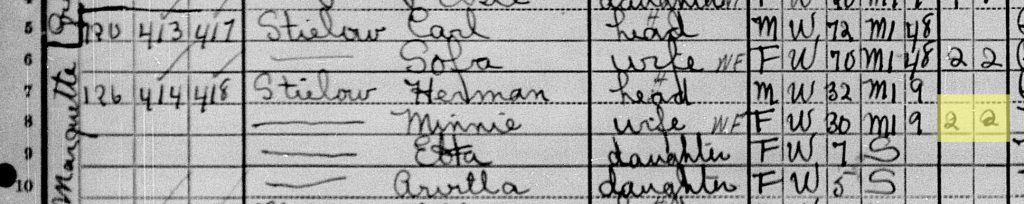 5 120 413 417 Stielow Carl head M W 72 M1 48
6 Sofa wife WF F W 70 M1 48 2 2
7 126 414 418 Stielow Herman head M W 32 M1 9
8 Minnie wife WF F W 30 M1 9 2 2
9 Etta daughter F W 7 S
10 Arvilla daughter F W 5 S
Marquette